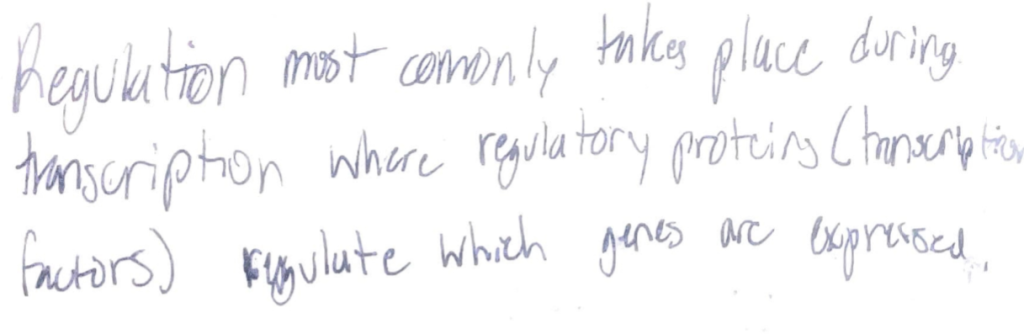 Regulation most comonly takes place during
transcription where regulatory proteins (transcription
factors) regulate which genes are expressed.